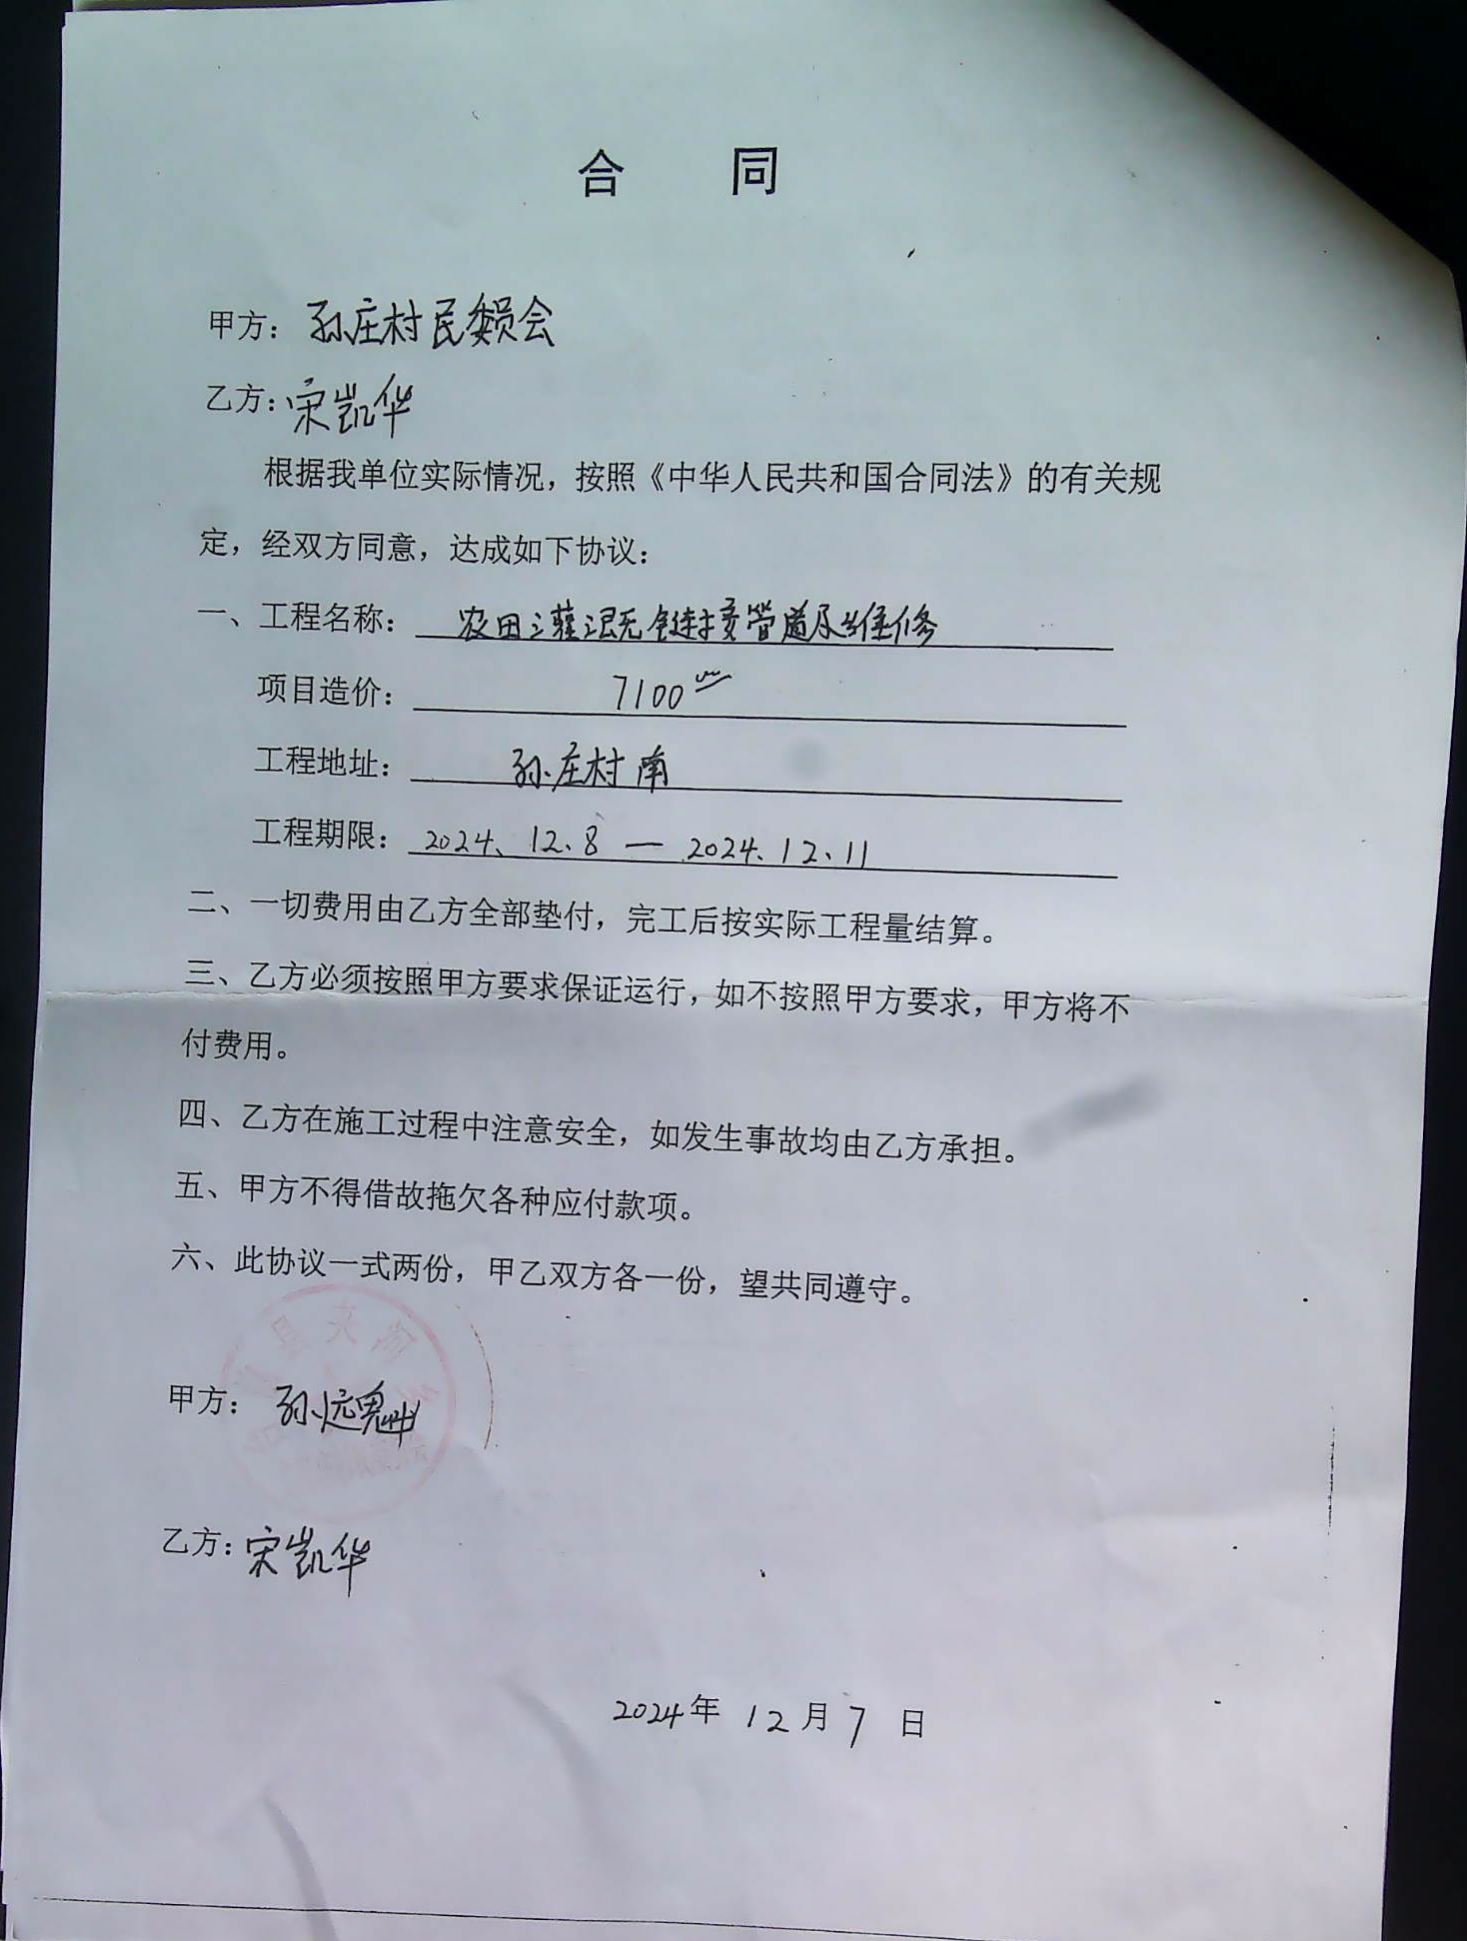 合 同
甲方：孙庄村民委员会
乙方：宋凯华
根据我单位实际情况，按照《中华人民共和国合同法》的有关规
定，经双方同意，达成如下协议：
一、工程名称：农田灌溉链接管道及维修
项目造价：7100
工程地址：孙庄村南
工程期限：2024、12、8 — 2024、12、11
二、一切费用由乙方全部垫付，完工后按实际工程量结算。
三、乙方必须按照甲方要求保证运行，如不按照甲方要求，甲方将不
付费用。
四、乙方在施工过程中注意安全，如发生事故均由乙方承担。
五、甲方不得借故拖欠各种应付款项。
六、此协议一式两份，甲乙双方各一份，望共同遵守。
甲方：孙远
乙方：宋凯华
2024年 12月 7 日